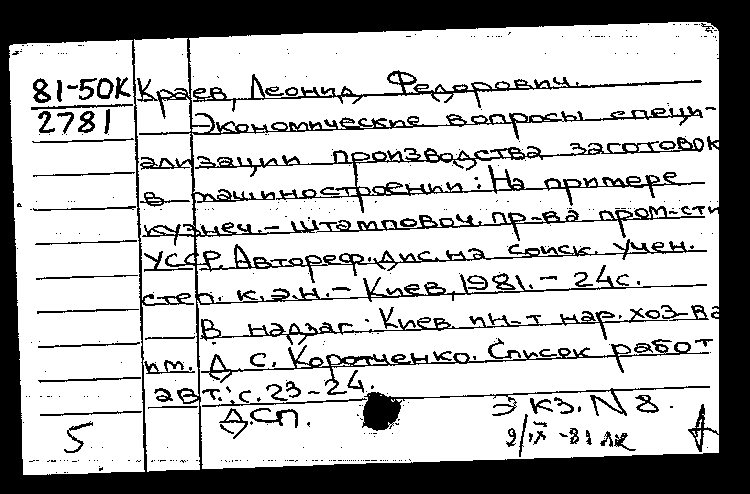 81-50К Краев, Леонид Федорович.
2781 Экономические вопросы специ-
ализации производства заготовок
в машиностроении: На примере
кузнеч.-штамповоч. пр-ва пром-сти
УССР. Автореф. дис. на соиск. учен.
степ. к.э.н. - Киев, 1981. - 24с.
В надзаг: Киев. ин-т нар. хоз-ва
им. Д. С. Коротченко. Список работ
авт.: с. 23-24.
ДСП. Экз. N 8.
5 9/IX -81